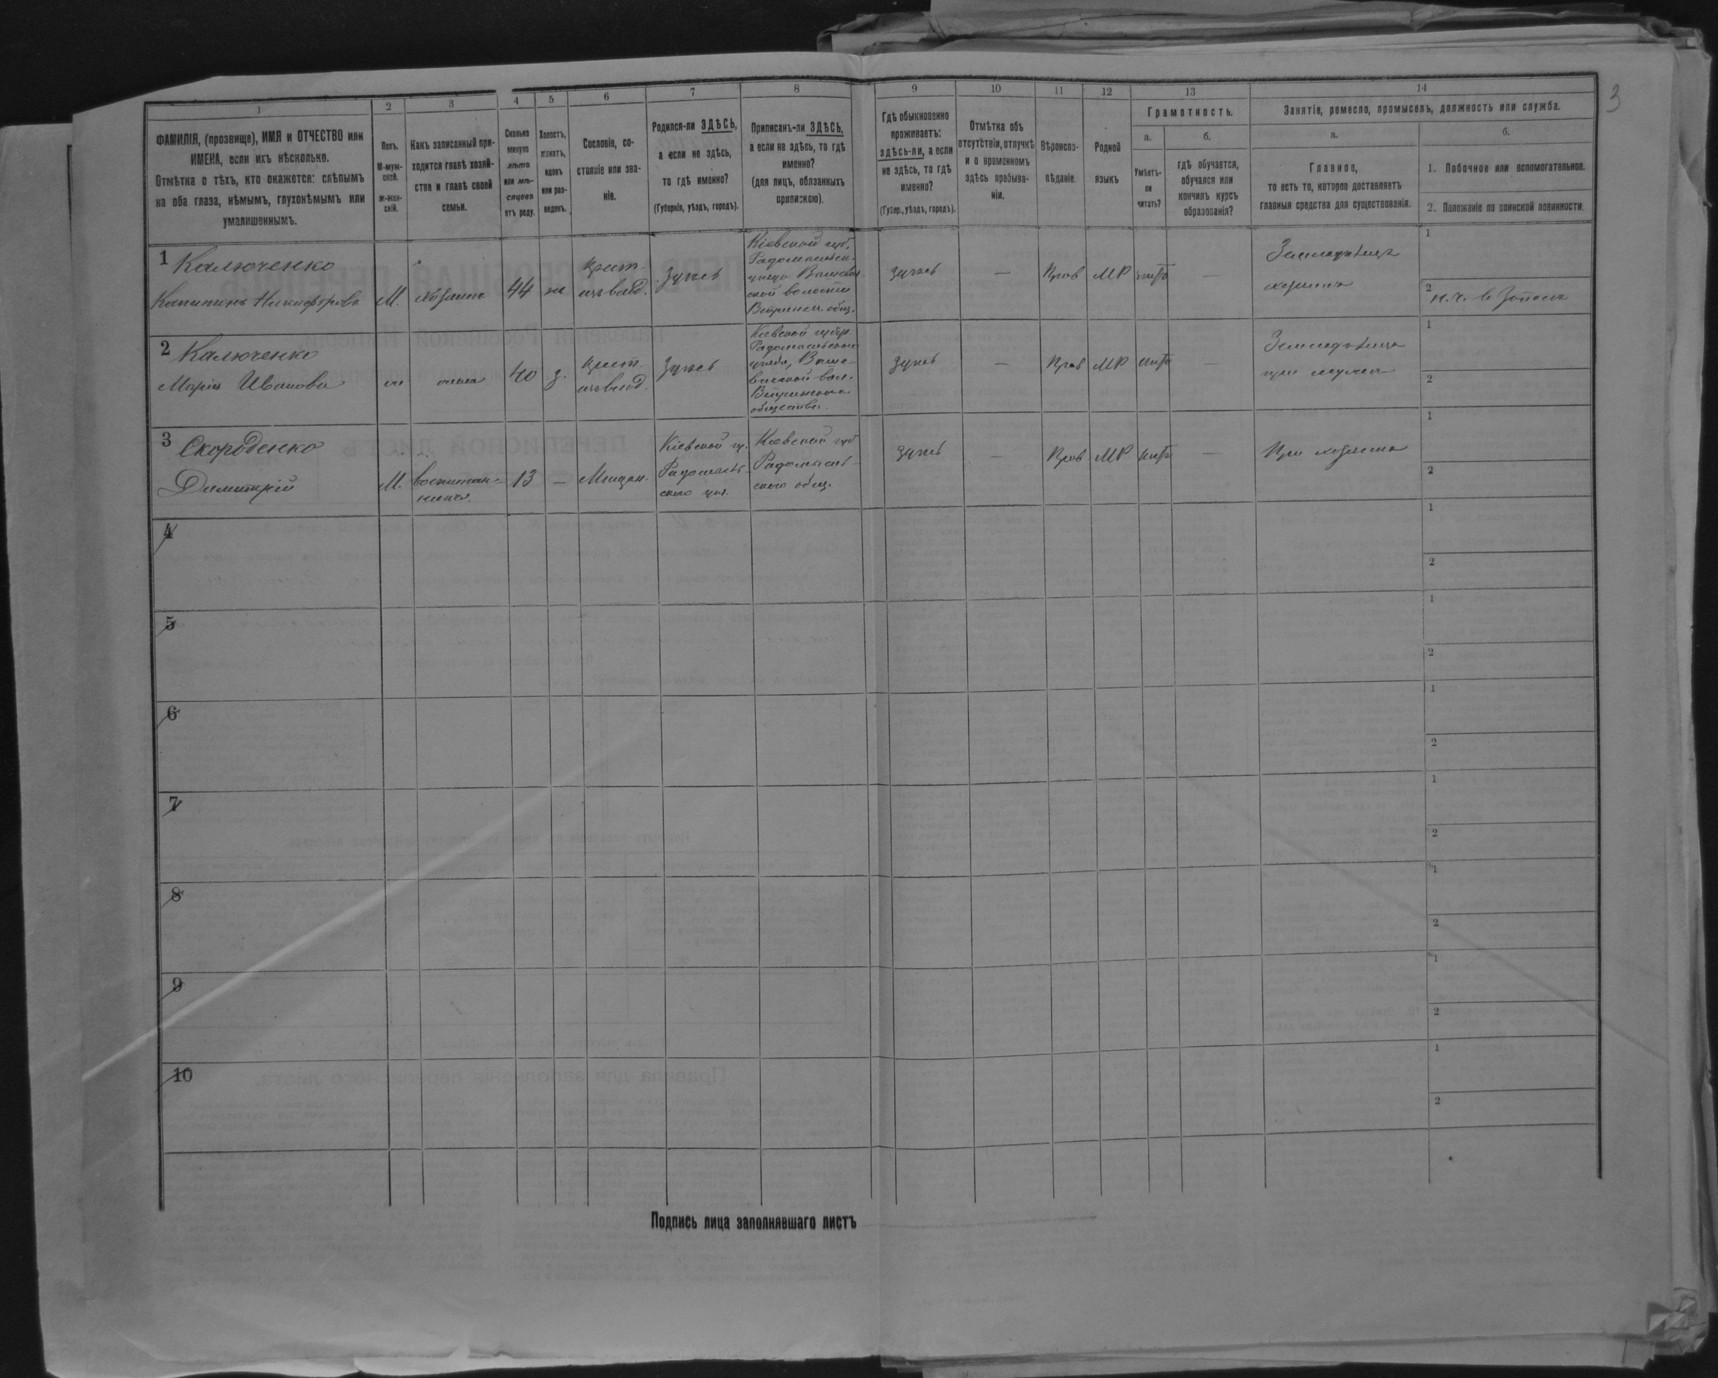 3
1
2
3
4
5
6
7
8
9
10
11
12
13
14
ФАМИЛІЯ, (прозвище), ИМЯ и ОТЧЕСТВО или
ИМЕНА, если ихъ нѣсколько.
Отмѣтка о тѣхъ, кто окажется: слѣпымъ
на оба глаза, нѣмымъ, глухонѣмымъ или
умалишеннымъ.
Полъ.
М-муж-
ской.
Ж-жен-
скій.
Какъ записанный при-
ходится главѣ хозяй-
ства и главѣ своей
семьи.
Сколько
минуло
лѣтъ
или мѣ-
сяцевъ
отъ роду.
Холостъ,
женатъ,
вдовъ
или раз-
веденъ.
Сословіе, со-
стояніе или зва-
ніе.
Родился-ли ЗДѢСЬ,
а если не здѣсь,
то гдѣ именно?
(Губернія, уѣздъ, городъ).
Приписанъ-ли ЗДѢСЬ,
а если не здѣсь, то гдѣ
именно?
(для лицъ, обязанныхъ
припискою).
Гдѣ обыкновенно
проживаетъ:
здѣсь-ли, а если
не здѣсь, то гдѣ
именно?
(Губер., уѣздъ, городъ).
Отмѣтка объ
отсутствіи, отлучкѣ
и о временномъ
здѣсь пребыва-
ніи.
Вѣроиспо-
вѣданіе.
Родной
языкъ
Грамотность.
а.
Умѣетъ-
ли
читать?
б.
гдѣ обучается,
обучался или
кончилъ курсъ
образованія?
Занятіе, ремесло, промыселъ, должность или служба.
а.
Главное,
то есть то, которое доставляетъ
главныя средства для существованія.
б.
1. Побочное или вспомогательное.
2. Положеніе по воинской повинности.
1 Калюченко
Капитинъ Никифоровъ
М.
хозяинъ
44
ж
крест.
изъ влад.
здѣсь
Кіевской губ.
волости
общ.
здѣсь
—
Прав
МР
нѣтъ
—
Земледѣлецъ
хозяинъ
1
2
2 Калюченко
Марія Иванова
ж
жена
40
з.
крест.
изъ влад.
здѣсь
Кіевской губ.
Радомысльскаго
уѣзда,
вол.
общества.
здѣсь
—
Прав
МР
нѣтъ
Земледѣлецъ
при мужѣ
1
2
3 Скороденко
Димитрій
М.
воспитан-
никъ
13
—
Мѣщан.
Кіевской г.
Радомысль-
скаго уѣз.
Кіевской губ
Радомысль-
скаго общ.
здѣсь
—
Прав
МР
нѣтъ
—
При хозяинѣ
1
2
4
1
2
5
1
2
6
1
2
7
1
2
8
1
2
9
1
2
10
1
2
Подпись лица заполнявшаго листъ